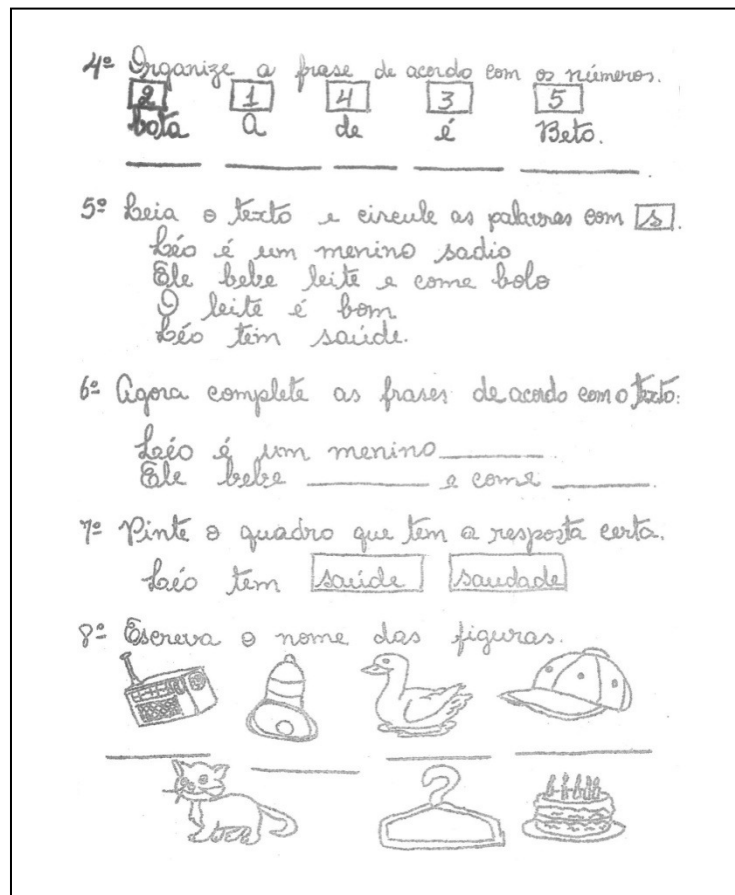 4º Organize a frase de acordo com os números.
2 1 4 3 5
bota a de é Beto.
5º Leia o texto e circule as palavras com s.
Léo é um menino sadio
Ele bebe leite e come bolo
O leite é bom
Léo tem saúde.
6º Agora complete as frases de acordo com o texto:
Léo é um menino
Ele bebe e come .
7º Pinte o quadro que tem a resposta certa.
Léo tem saúde saudade
8º Escreva o nome das figuras.